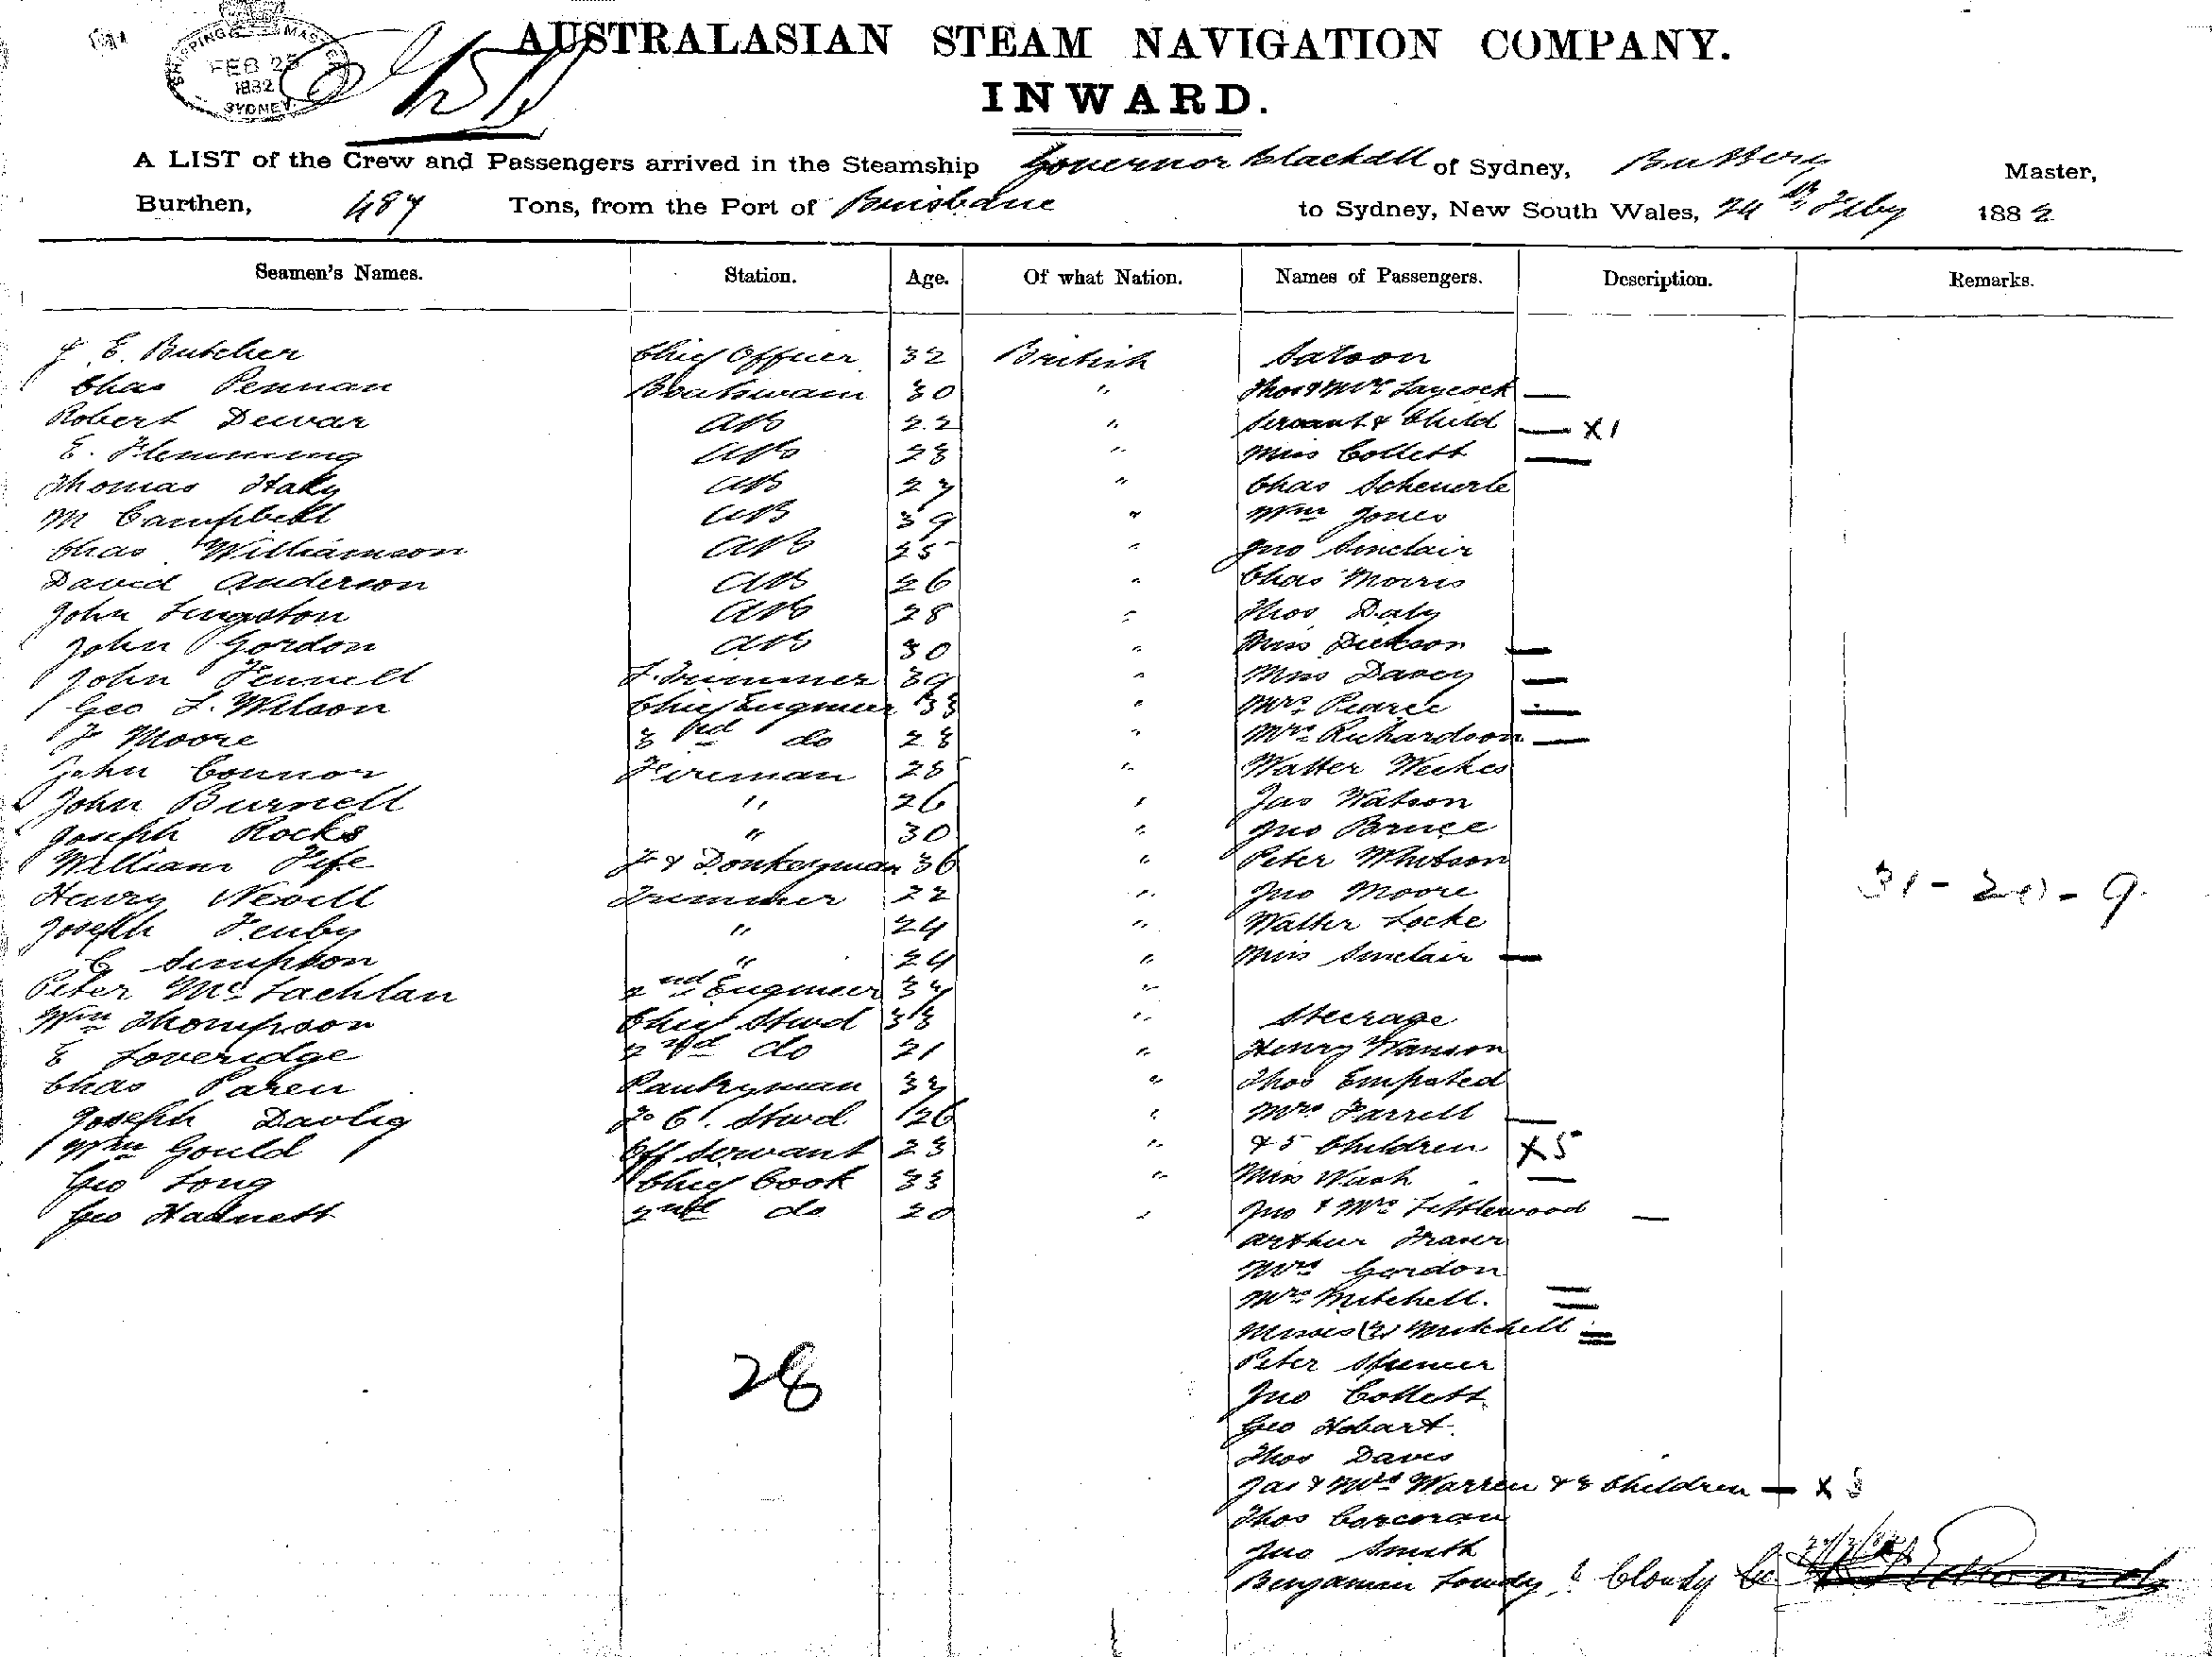 SHIPPING MASTER
FEB 25
1882
SYDNEY
AUSTRALASIAN STEAM NAVIGATION COMPANY.
INWARD.
A LIST of the Crew and Passengers arrived in the Steamship Governor Blackall of Sydney, Buttery Master,
Burthen, 487 Tons, from the Port of Brisbane to Sydney, New South Wales, 24th Feby 1882
Seamen's Names. Station. Age. Of what Nation. Names of Passengers. Description. Remarks.
J. E. Butcher Chief Officer 32 British Saloon
Chas Pennan Boatswain 30 " Thos & Mrs Laycock —
Robert Dewar AB 22 " Servant & Child — X1
E. Flemming AB 23 " Miss Collett —
Thomas Haly AB 27 " Chas Scheuerle
M Campbell AB 39 " Wm Jones
Chas Williamson AB 25 " Jno Sinclair
David Anderson AB 26 " Chas Morris
John Lingston AB 28 " Thos Daly
John Gordon AB 30 " Miss Dickson —
John Fennell L. Trimmer 39 " Miss Davey —
Geo L. Wilson Chief Engineer 33 " Mrs Pearce —
F Moore 3rd do 23 " Mrs Richardson —
John Connor Fireman 28 " Walter Weekes
John Burnell " 26 " Jas Watson
Joseph Rocks " 30 " Jno Bruce
William Fife F & Donkeyman 36 " Peter Whitson
Henry Newell Trimmer 22 " Jno Moore
Joseph Fenby " 24 " Walter Locke
C Simpson " 24 " Miss Sinclair —
Peter McLachlan 2nd Engineer 34 "
Wm Thompson Chief Stwd 33 " Steerage
E Loveridge 2nd do 21 " Henry Wanson
Chas Paren Pantryman 37 " Thos Empsted
Joseph Davlig F. C. Stwd 26 " Mrs Farrell —
Wm Gould Off Servant 23 " & 5 Children X5
Geo Long Chief Cook 33 " Miss Wash —
Geo Hadnett 2nd do 20 " Jno & Mrs Littlewood —
Arthur Fraser
Mrs Gordon —
Mrs Mitchell. —
Misses (2) Mitchell =
Peter Spencer
Jno Collett
Geo Hobart
Thos Davis
Jas & Mrs Warren & 3 Children — X 3
Thos Corcoran
Jno Smith
Benjamin Lowdy
31 - 20 - 9.
28